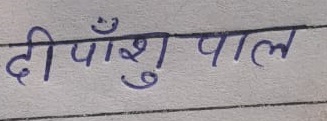 दीपाँशु पाल